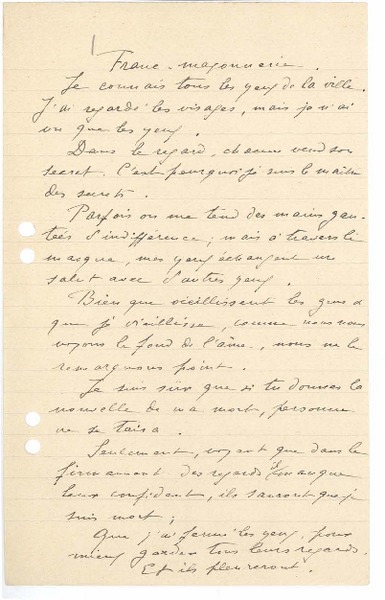 Franc-maçonnerie.
Je connais tous les yeux de la ville.
J'ai regardé les visages, mais je n'ai
vu que les yeux.
Dans le regard, chacun vend son
secret. C'est pourquoi je suis le maître
des secrets.
Parfois on me tend des mains gan-
tées d'indifférence; mais à travers le
masque, mes yeux échangent un
salut avec d'autres yeux.
Bien que vieillissent les gens et
que je vieillisse, comme nous nous
voyons le fond de l'âme, nous ne le
remarquons point.
Je suis sûr que si tu donnes la
nouvelle de ma mort, personne
ne se taira.
Seulement, voyant que dans le
firmament des regards il manque
leur confident, ils sauront que je
suis mort;
Que j'ai fermé les yeux, pour
mieux garder tous leurs regards.
Et ils pleureront.